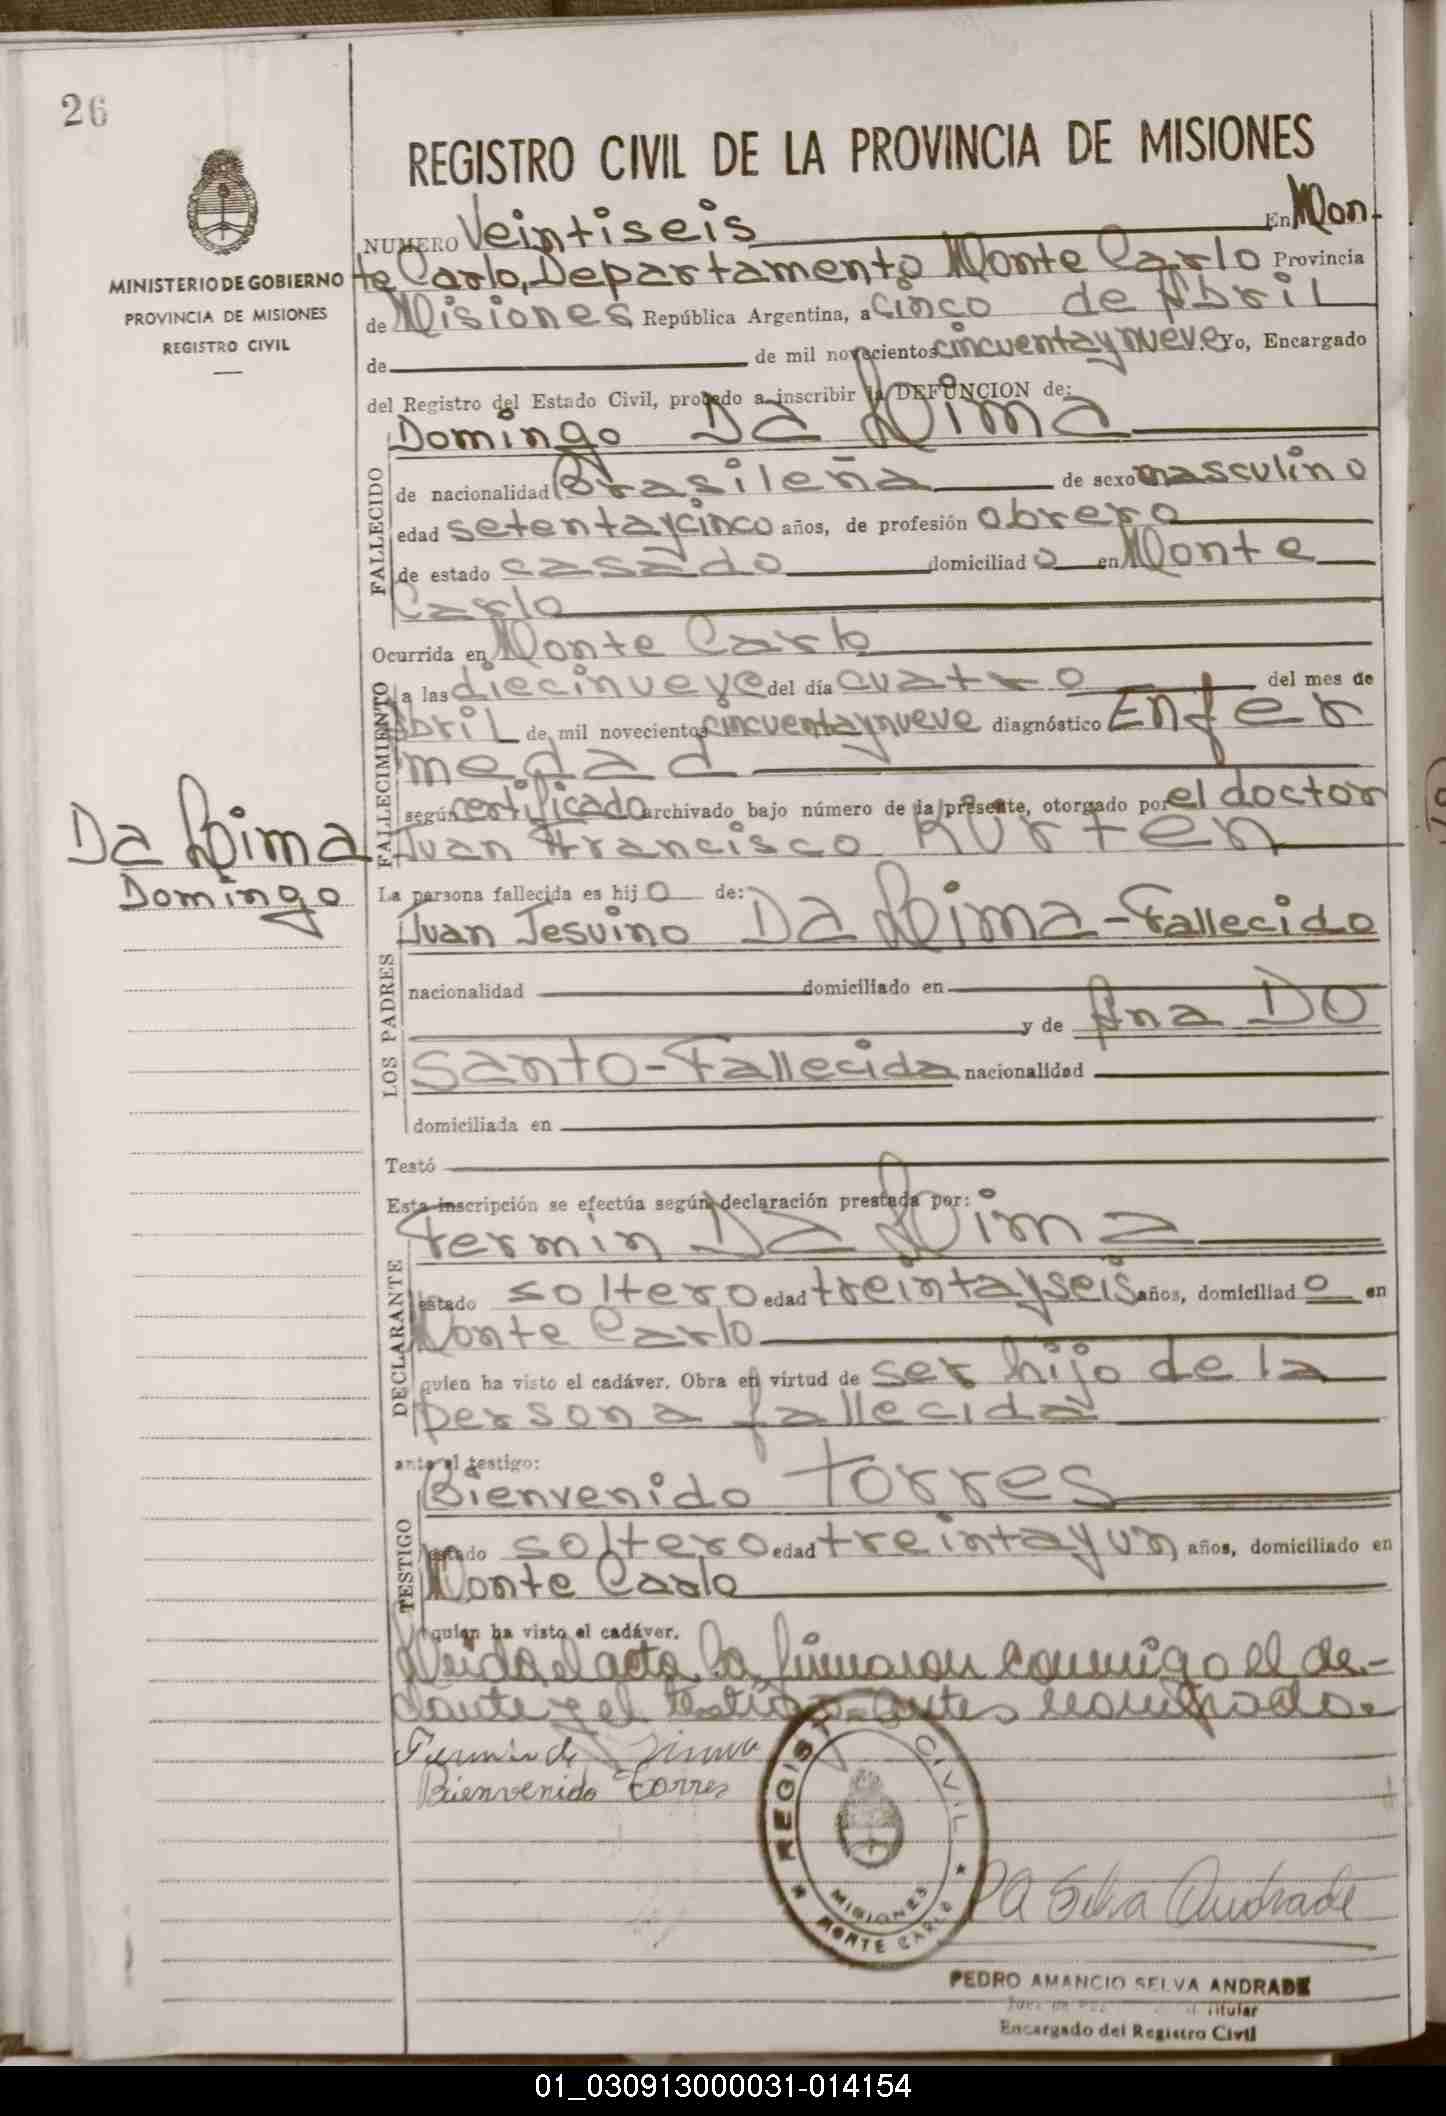 26
MINISTERIO DE GOBIERNO
PROVINCIA DE MISIONES
REGISTRO CIVIL
REGISTRO CIVIL DE LA PROVINCIA DE MISIONES
NUMERO Veintiseis En Mon-
te Carlo, Departamento Monte Carlo Provincia
de Misiones República Argentina, a cinco de Abril
de de mil novecientos cincuentaynueve. Yo, Encargado
del Registro del Estado Civil, procedo a inscribir la DEFUNCION de:
Domingo Da Lima
FALLECIDO
de nacionalidad Brasileña de sexo masculino
edad setentaycinco años, de profesión obrero
de estado casado domiciliad o en Monte
Carlo
Ocurrida en Monte Carlo
FALLECIMIENTO
a las diecinueve del día cuatro del mes de
Abril de mil novecientos cincuentaynueve diagnóstico Enfer
medad
según certificado archivado bajo número de la presente, otorgado por el doctor
Juan Francisco Kurten
Da Lima
Domingo
La persona fallecida es hij o de:
Juan Jesuino Da Lima-Fallecido
LOS PADRES
nacionalidad domiciliado en
y de Ana Do
Santo-Fallecida nacionalidad
domiciliada en
Testó
Esta inscripción se efectúa según declaración prestada por:
Fermin Da Lima
DECLARANTE
estado soltero edad treintayseis años, domiciliad o en
Monte Carlo
quien ha visto el cadáver. Obra en virtud de ser hijo de la
persona fallecida
ante el testigo:
Bienvenido Torres
TESTIGO
estado soltero edad treintayun años, domiciliado en
Monte Carlo
quien ha visto el cadáver.
Leida el acta la firmaron conmigo el de-
clarante y el testigo antes nombrado.
Fermin da Lima
Bienvenido Torres
REGISTRO CIVIL
MISIONES
MONTE CARLO
PA Selva Andrade
PEDRO AMANCIO SELVA ANDRADE
Titular
Encargado del Registro Civil
01_030913000031-014154